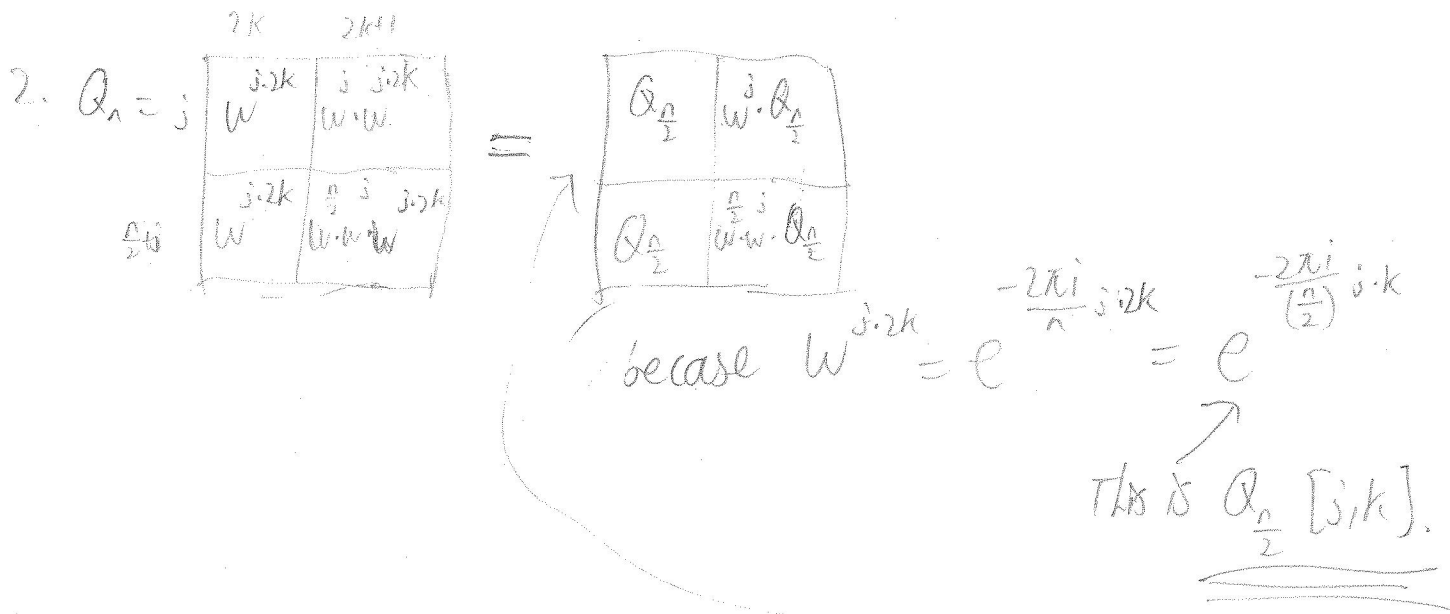 2k 2k+1
2. Qₙ = j w^{j·2k} w^j·w^{j·2k} = Q_{n/2} w^j·Q_{n/2}
n/2+j w^{j·2k} w^{n/2}·w^j·w^{j·2k} Q_{n/2} w^{n/2}·w^j·Q_{n/2}
becase w^{j·2k} = e^{-2πi/n j·2k} = e^{-2πi/(n/2) j·k}
This is Q_{n/2} [j,k].